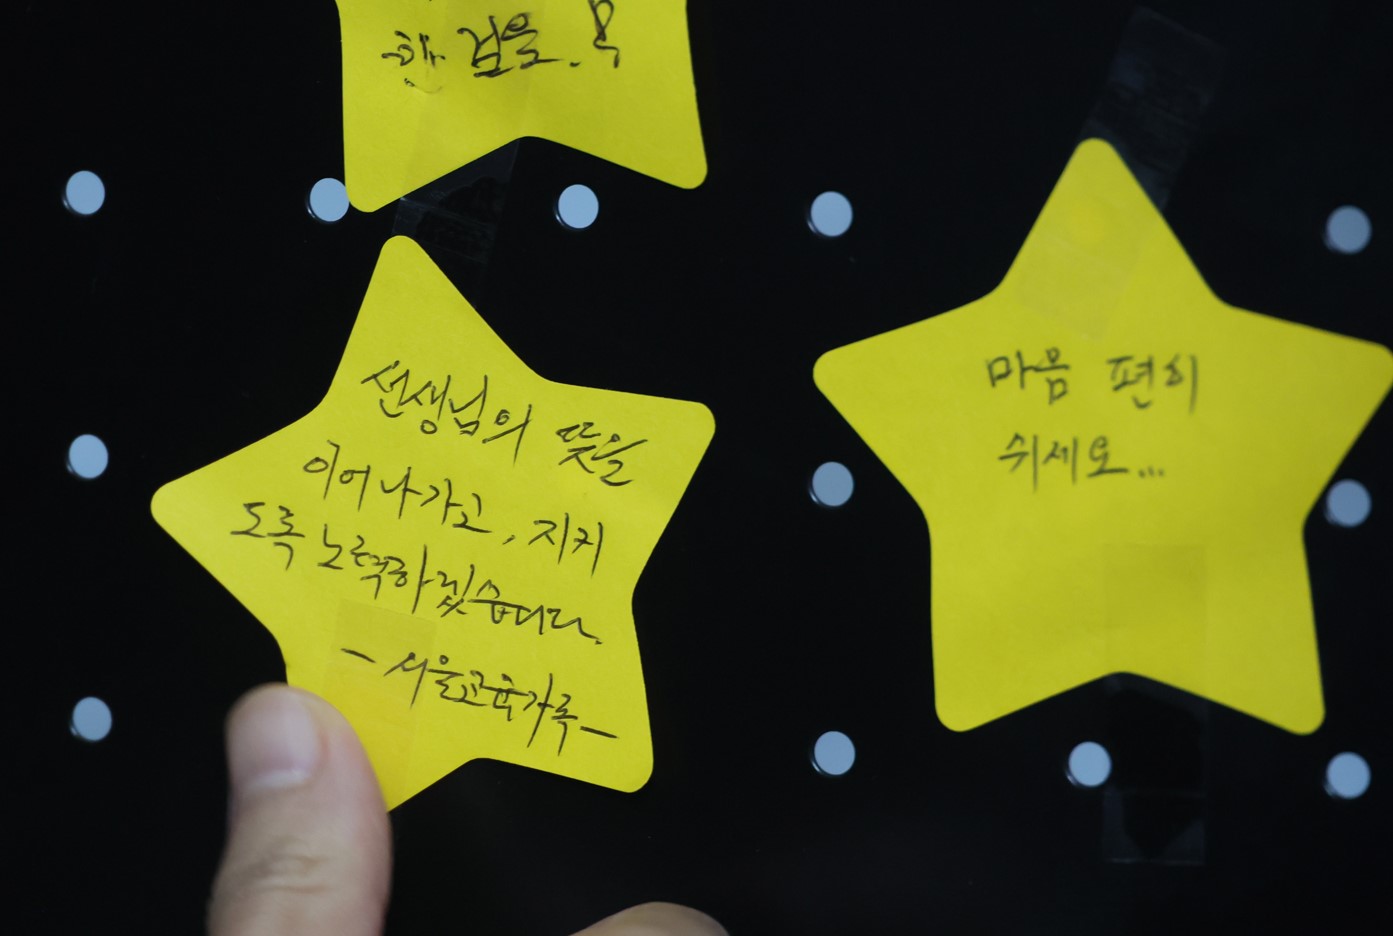 한 걸음.
선생님의 뜻을
이어나가고, 지키
도록 노력하겠습니다.
- 서울교육가족 -
마음 편히
쉬세요...